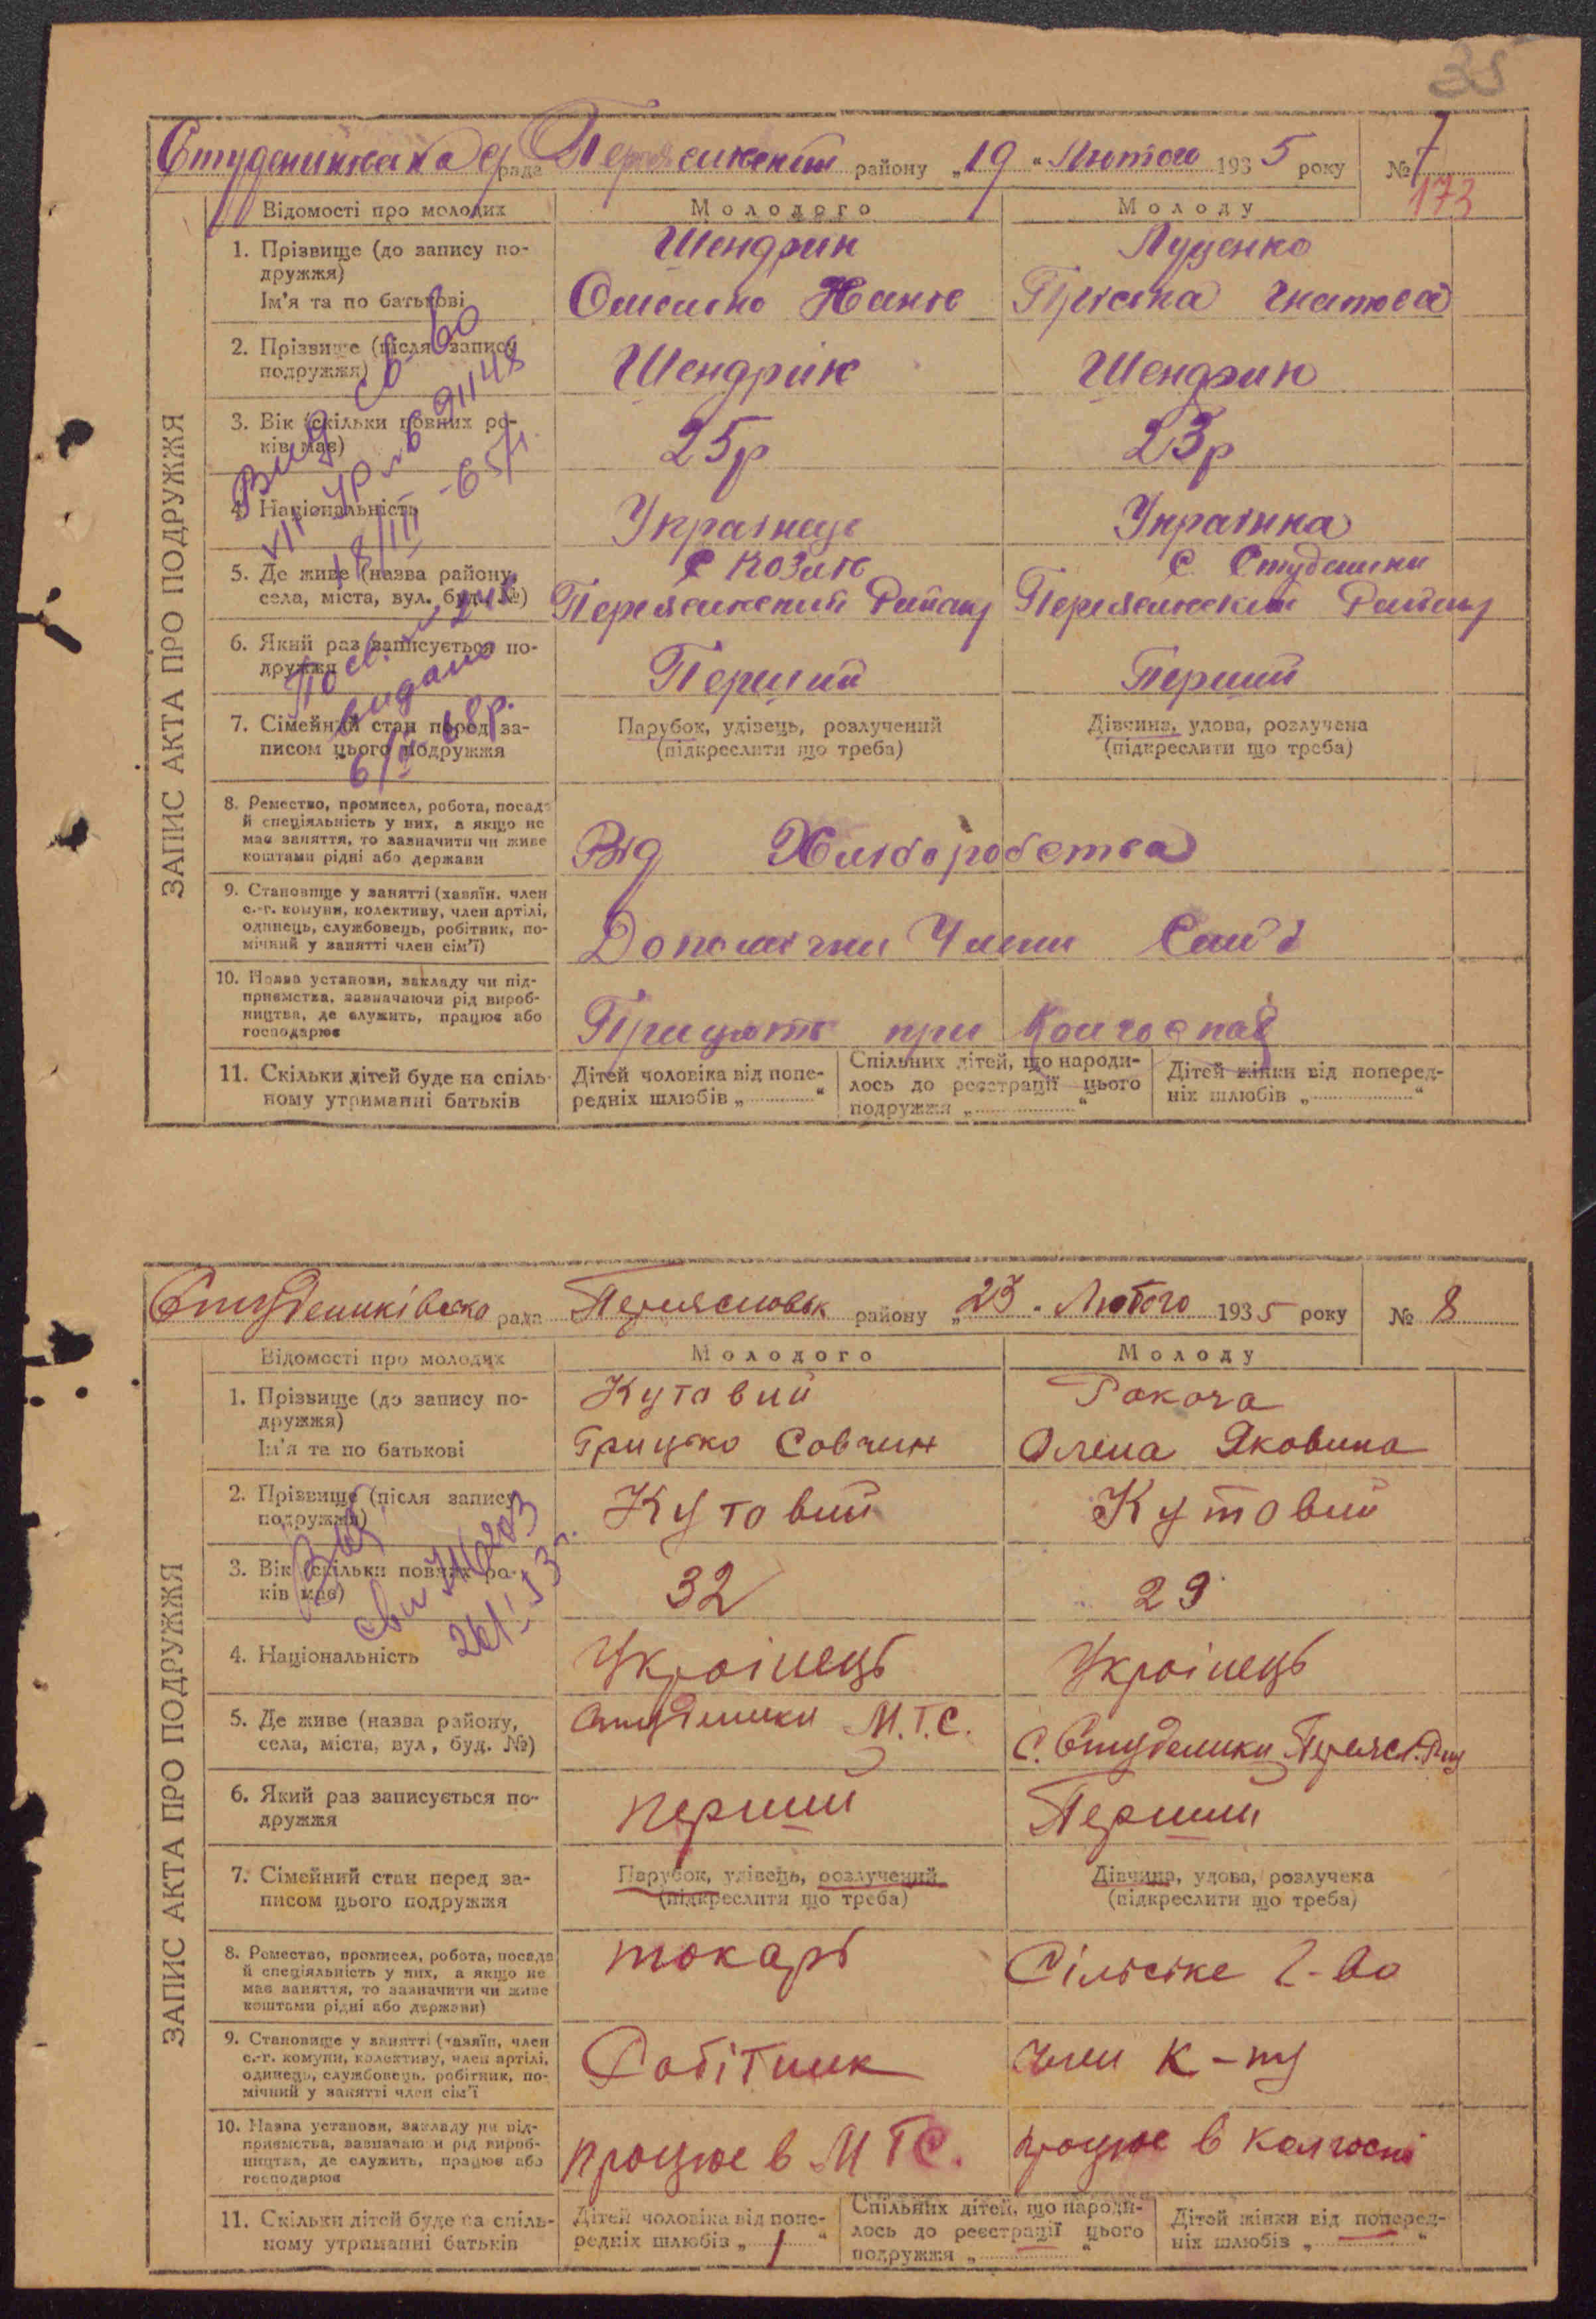 35
рада района „19“ Лютого 1935 року № 7
173
Відомості про молодих Молодого Молоду
1. Прізвище (до запису по-
дружжя)
Ім'я та по батькові
Шендрик Луценко
2. Прізвище (після запису
подружжя)
Шендрик Шендрик
3. Вік (скільки повних ро-
ків має)
25р 23р
4. Національність
Українець Українка
5. Де живе (назва району,
села, міста, вул. буд. №)
с Студеники
6. Який раз записується по-
дружжя
Перший Перший
7. Сімейний стан перед за-
писом цього подружжя
Парубок, удівець, розлучений
(підкреслити що треба)
Дівчина, удова, розлучена
(підкреслити що треба)
8. Ремество, промисел, робота, посада
й спеціяльність у них, а якщо не
має заняття, то зазначити чи живе
коштами рідні або держави
Від Хліборобства
9. Становище у занятті (хазяїн, член
с.-г. комуни, колективу, член артілі,
одинець, службовець, робітник, по-
мічний у занятті член сім'ї)
10. Назва установи, закладу чи під-
приємства, зазначаючи рід вироб-
ництва, де служить, працює або
господарює
при
11. Скільки дітей буде на спіль-
ному утриманні батьків
Дітей чоловіка від попе-
редніх шлюбів „ “
Спільних дітей, що народи-
лось до реєстрації цього
подружжя „ “
Дітей жінки від поперед-
ніх шлюбів „ “
ЗАПИС АКТА ПРО ПОДРУЖЖЯ
рада району „23“ Лютого 1935 року № 8
Відомості про молодих Молодого Молоду
1. Прізвище (до запису по-
дружжя)
Ім'я та по батькові
Кутовий
Грицько Олена Яковина
2. Прізвище (після запису
подружжя)
Кутовий Кутовий
3. Вік (скільки повних ро-
ків має)
32 29
4. Національність
Українець Українець
5. Де живе (назва району,
села, міста, вул, буд. №)
Студеники М.Т.С. с. Студеники
6. Який раз записується по-
дружжя
перший Перший
7. Сімейний стан перед за-
писом цього подружжя
Парубок, удівець, розлучений
(підкреслити що треба)
Дівчина, удова, розлучена
(підкреслити що треба)
8. Ремество, промисел, робота, посада
й спеціяльність у них, а якщо не
має заняття, то зазначити чи живе
коштами рідні або держави)
токарь Сільське г-во
9. Становище у занятті (хазяїн, член
с.-г. комуни, колективу, член артілі,
одинець, службовець, робітник, по-
мічний у занятті член сім'ї
Робітник член к-пу
10. Назва установи, закладу чи під-
приємства, зазначаючи рід вироб-
ництва, де служить, працює або
господарює
працює в МТС. працює в колгоспі
11. Скільки дітей буде на спіль-
ному утриманні батьків
Дітей чоловіка від попе-
редніх шлюбів „ 1 “
Спільних дітей, що народи-
лось до реєстрації цього
подружжя „ “
Дітей жінки від поперед-
ніх шлюбів „ “
ЗАПИС АКТА ПРО ПОДРУЖЖЯ